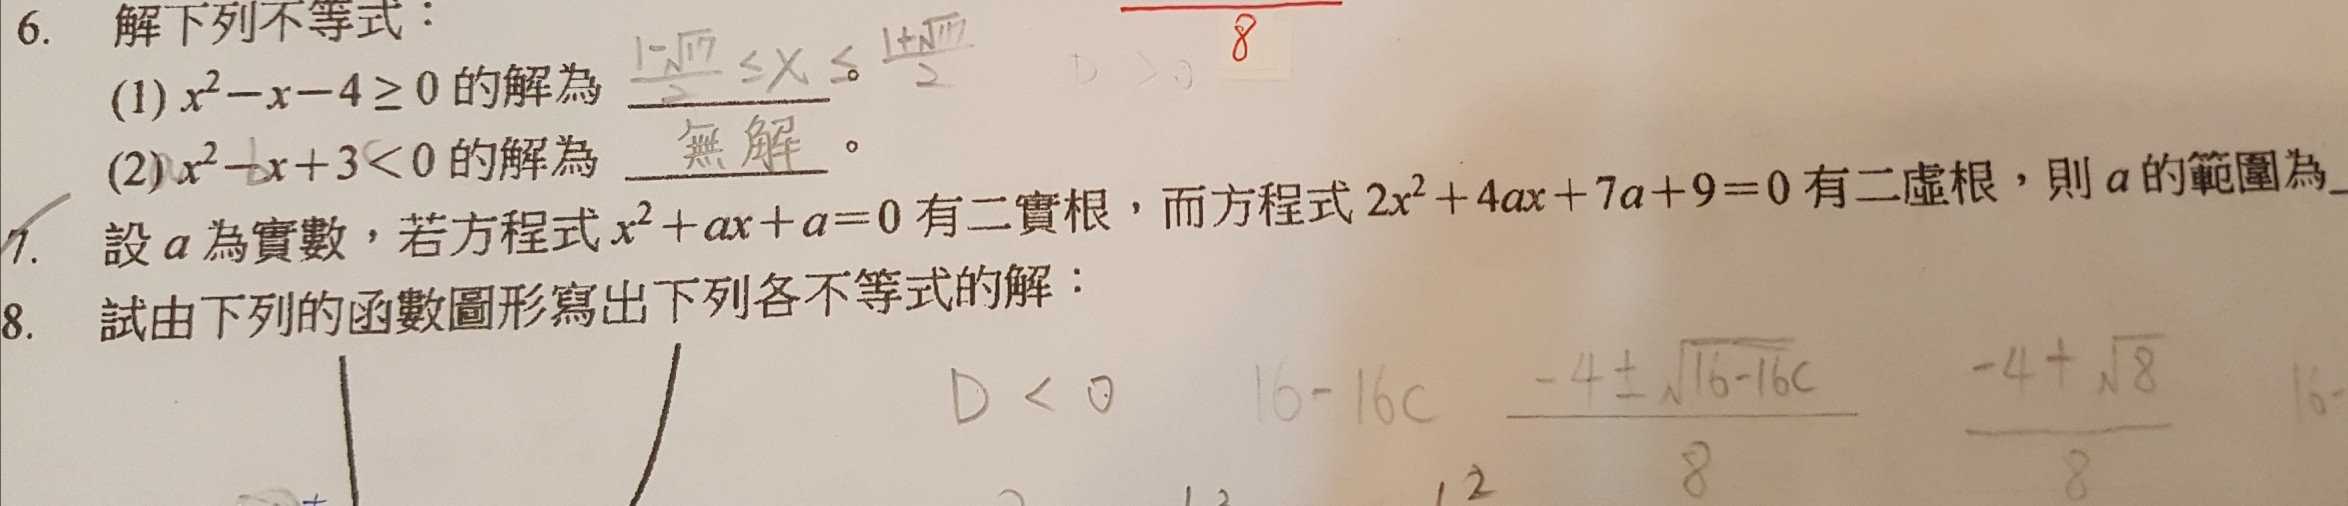 6. 解下列不等式：
(1) x²－x－4≥0 的解為 (1-√17)/2 ≤ X ≤ (1+√17)/2 。 D > 0 8
(2) x²－x＋3<0 的解為 無解 。
7. 設 a 為實數，若方程式 x²＋ax＋a＝0 有二實根，而方程式 2x²＋4ax＋7a＋9＝0 有二虛根，則 a 的範圍為
8. 試由下列的函數圖形寫出下列各不等式的解：
D < 0 16-16c (-4±√16-16c)/8 (-4+√8)/8 16-